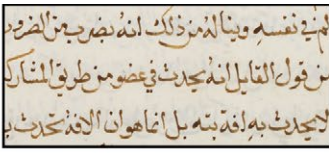 في نفسه ويناله من ذلك انه بضرب من الضرور
من قول القايل انه يحدث في عضو من طريق المشارك
لا يحدث به افة بته بل انما هو ان الافة تحدث